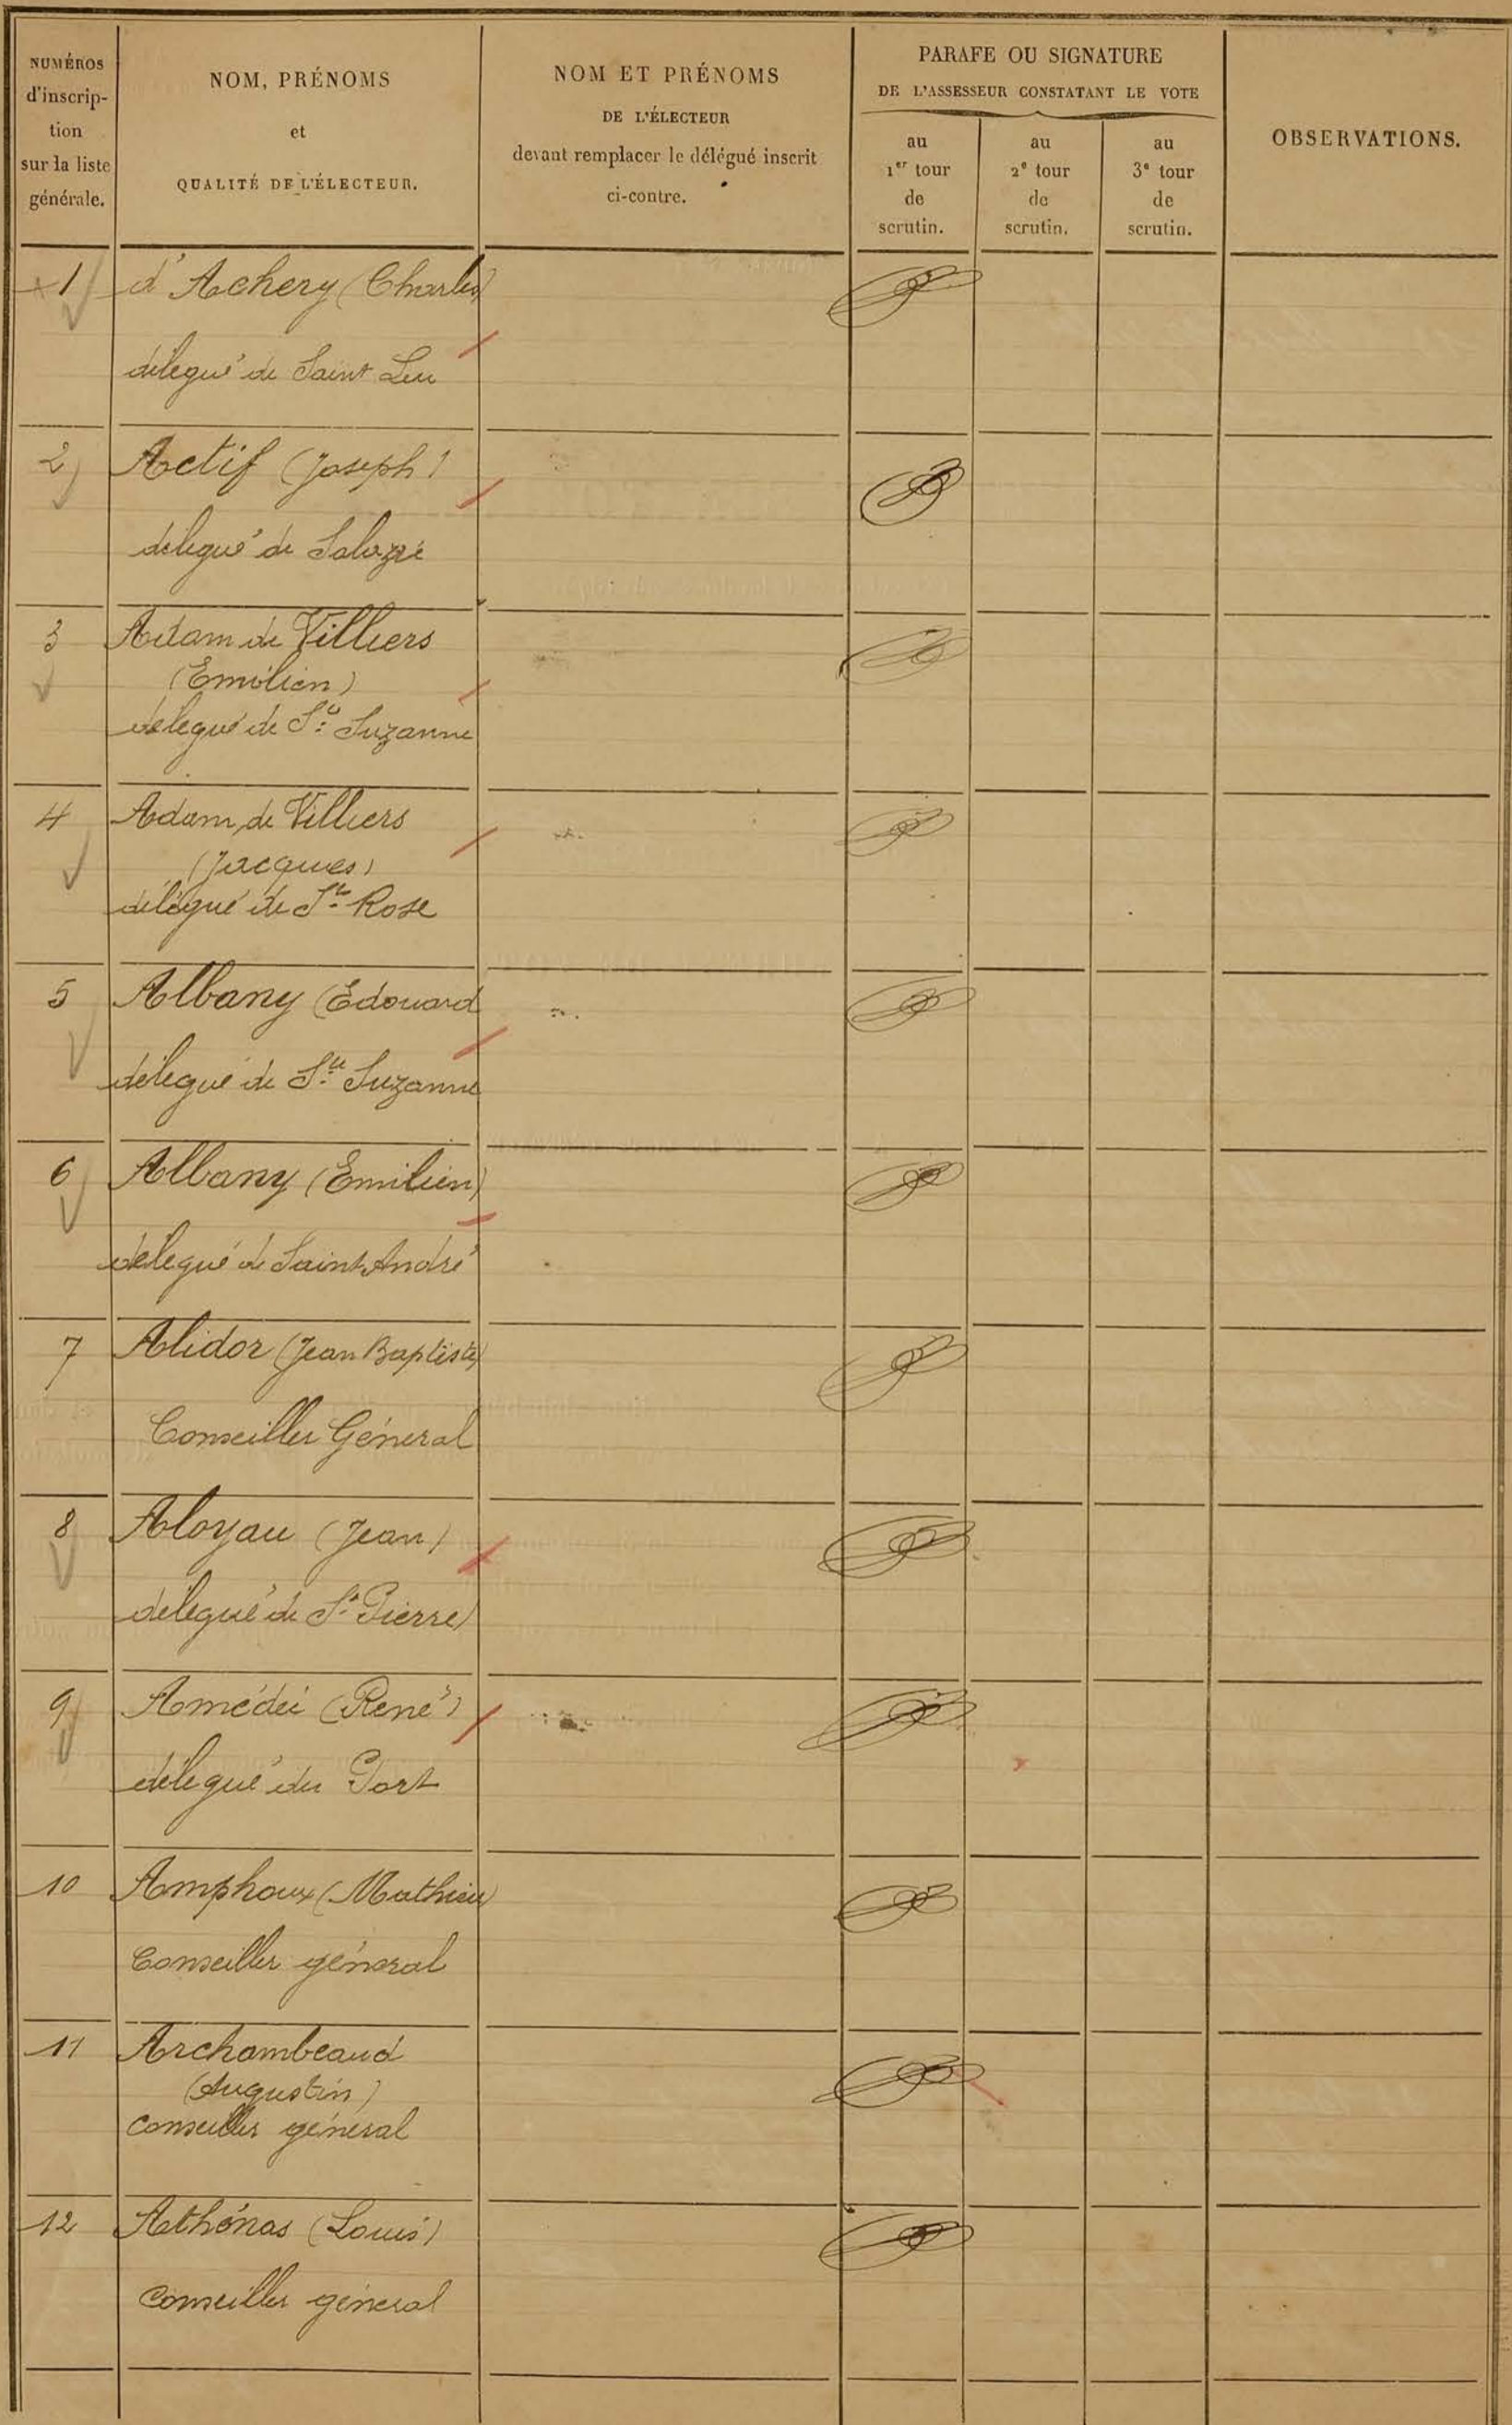 NUMÉROS
d'inscrip-
tion
sur la liste
générale.
NOM, PRÉNOMS
et
QUALITÉ DE L'ÉLECTEUR.
NOM ET PRÉNOMS
DE L'ÉLECTEUR
devant remplacer le délégué inscrit
ci-contre.
PARAFE OU SIGNATURE
DE L'ASSESSEUR CONSTATANT LE VOTE
au
1er tour
de
scrutin.
au
2e tour
de
scrutin.
au
3e tour
de
scrutin.
OBSERVATIONS.
1 d'Achery (Charles)
délegué de Saint Leu
2 Actif (Joseph)
délegué de Salazie
3 Adam de Villiers
(Emilien)
délegué de Ste Suzanne
4 Adam de Villiers
(Jacques)
délégué de Ste Rose
5 Albany (Edouard
délegué de Ste Suzanne
6 Albany (Emilien)
délegué de Saint André
7 Alidor (Jean Baptiste)
Conseiller Géneral
8 Aloyau (Jean)
délegué de St Pierre
9 Amédée (René)
délegué du Port
10 Amphoux (Mathieu)
Conseiller géneral
11 Archambeaud
(Augustin)
Conseiller géneral
12 Athénas (Louis)
Conseiller géneral